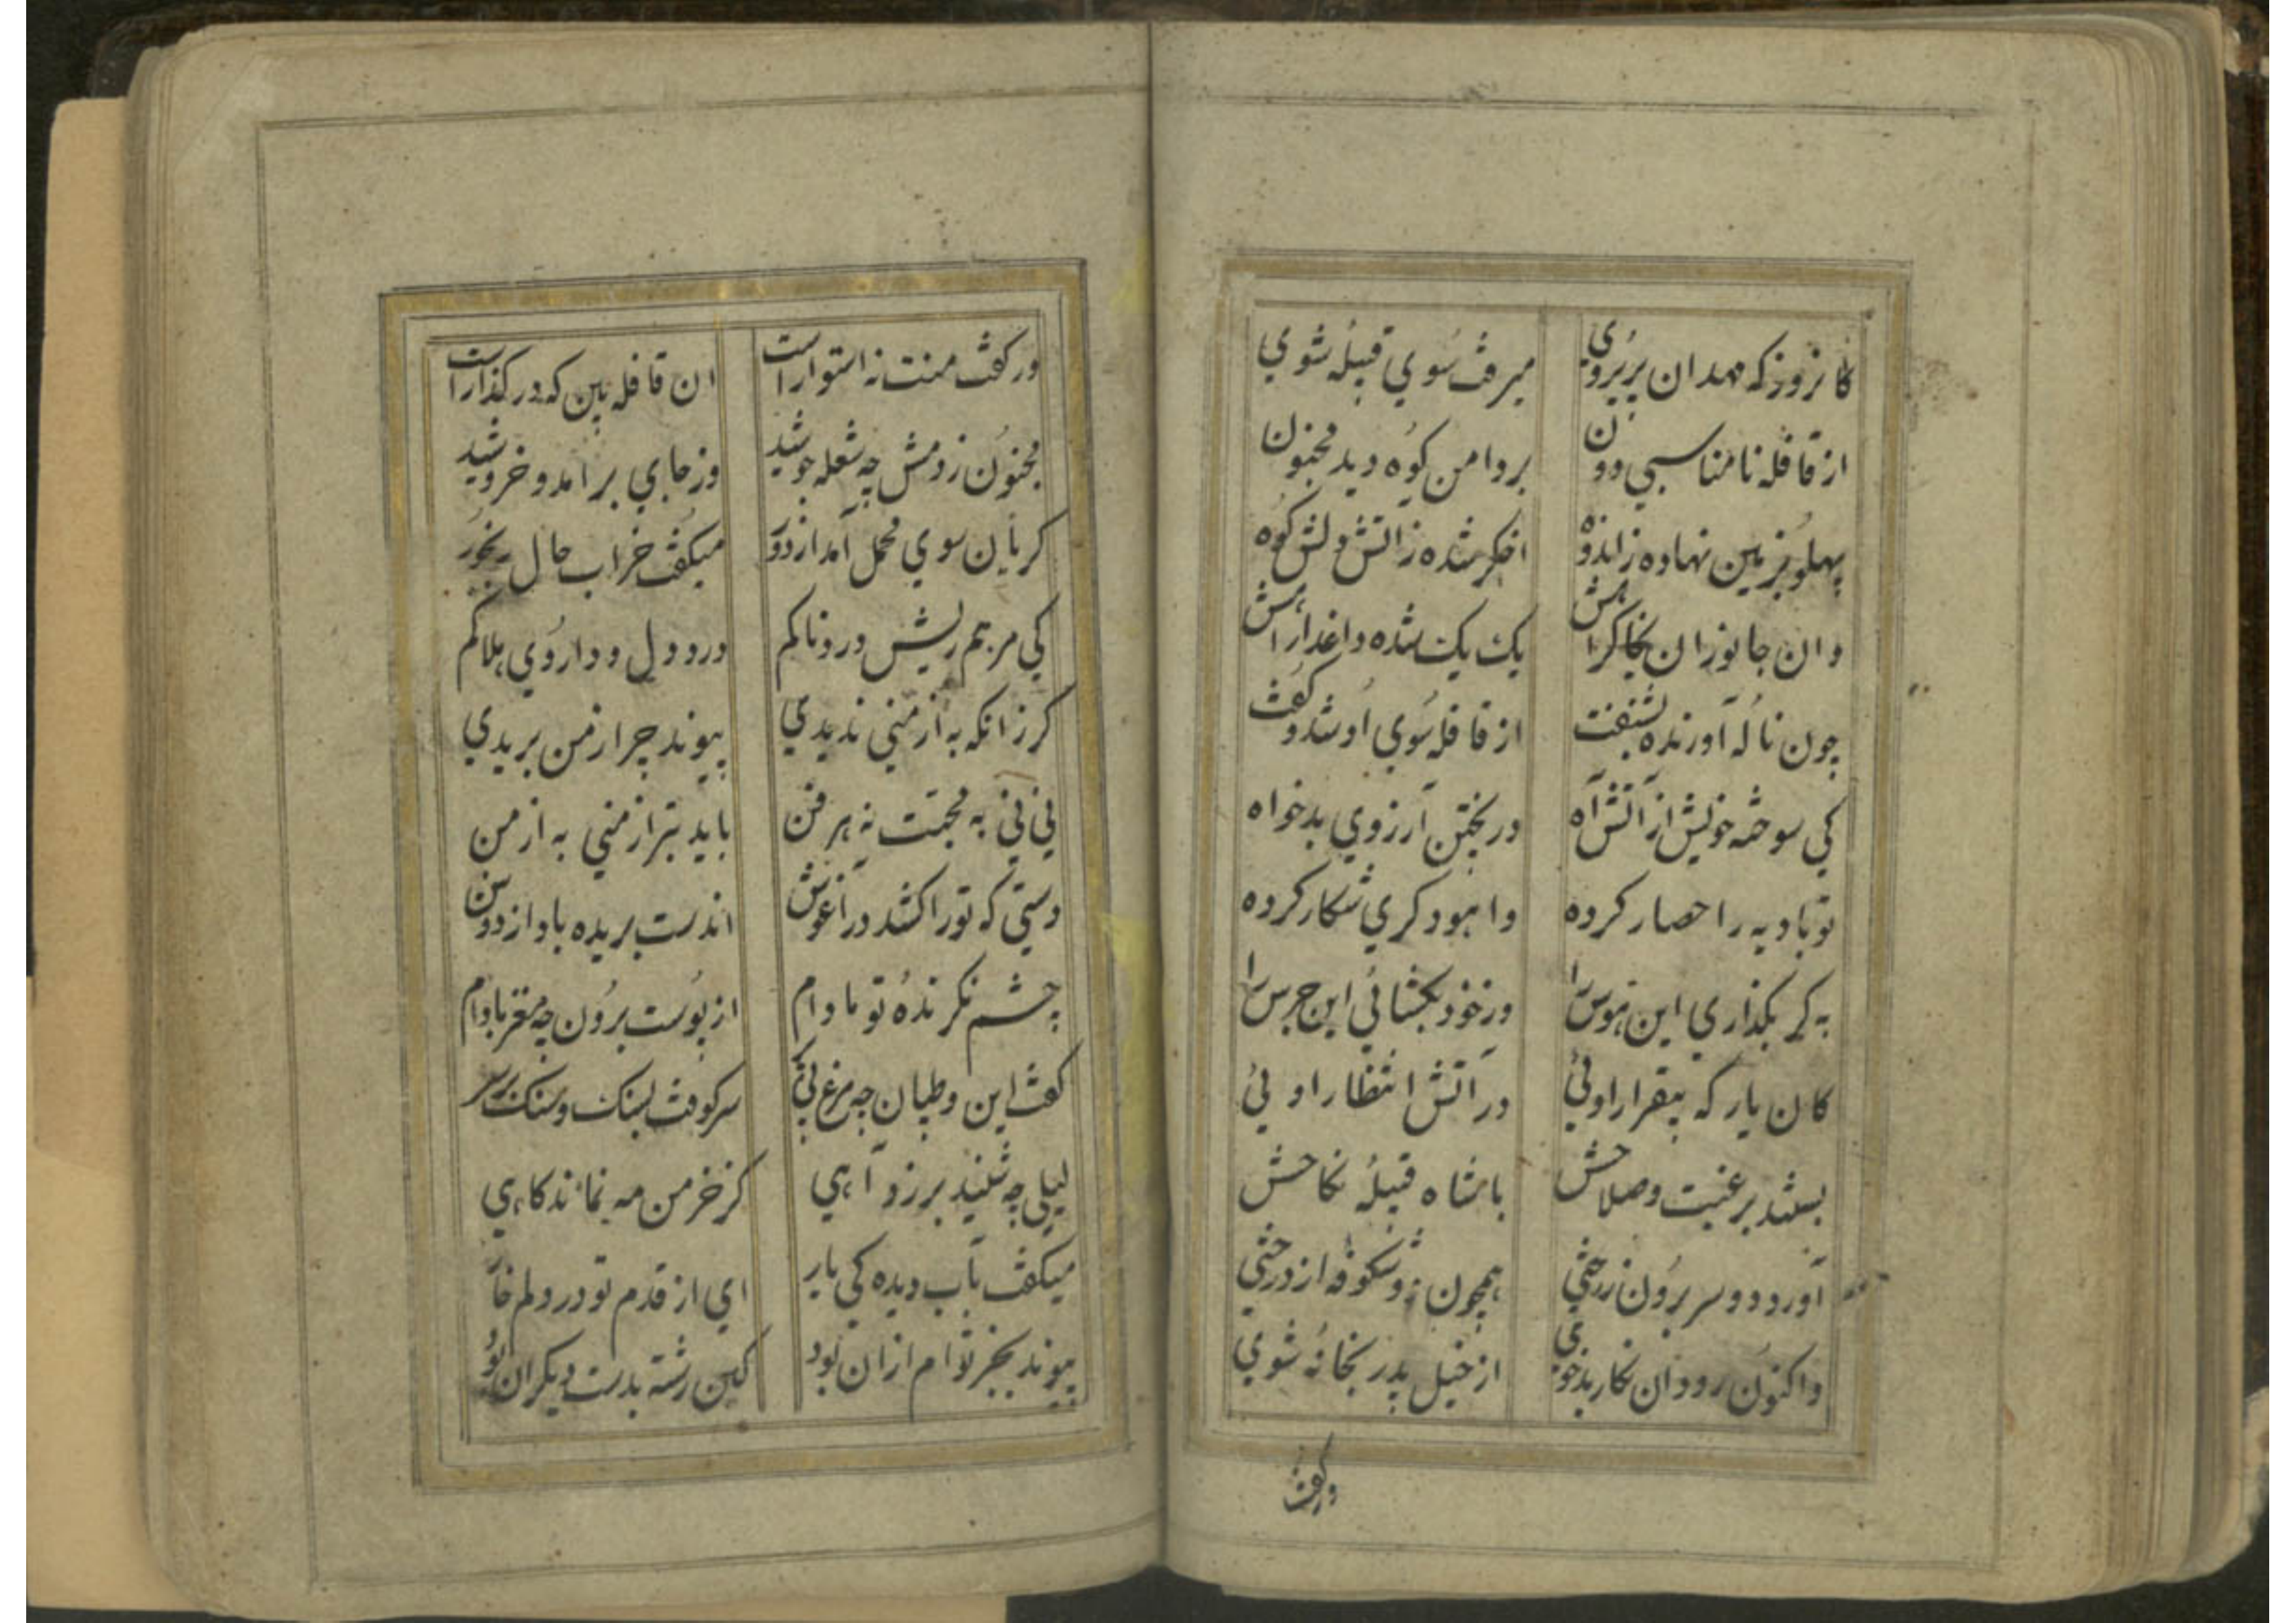 کانروز که مهدان پریروی میرفت سوی قبیلهٔ شوی
از قافله نامناسبی دون بر دامن کوه دید مجنون
پهلو بزمین نهاده ز اندوه اخکر شده ز اتش دلش کوه
وان جانوران بخاک راهش یک یک شده داغدار اهش
چون نالهٔ آورنده بشنفت از قافله سوی او شد و کفت
کی سوخته خویش از آتش آه در پختن آرزوی بدخواه
تو بادیه را حصار کرده واهو دکری شکار کرده
به کر بکذاری این هوس را وز خود بکشائی این جرس را
کان یار که بیقرار اوئی در آتش انتظار اوئی
بستند برغبت و صلاحش باشاه قبیلهٔ نکاحش
آورد دو سر برون ز رختی همچون دو شکوفه از درختی
واکنون رود ان نکار بدخوی از خیل پدر بخانهٔ شوی
ورکفت
ور کفت منت نه استوار است ان قافله بین که در کذار است
مجنون ز دمش چه شعله جوشید وز جای برآمد و خروشید
کریان سوی محمل آمد از دور میکفت خراب حال رنجور
کی مرهم ریش دردناکم درد دل و داروی هلاکم
کر زانکه به از منی ندیدی پیوند چرا ز من بریدی
نی نی به محبت نه هر فن باید بتر از منی به از من
دستی که تورا کشد در آغوش اندست بریده باد از دوش
چشم نکرندهٔ تو مادام از پوست برون چه مغز بادام
کفت این و طپان چه مرغ بی پر سر کوفت بسنک و سنک بر سر
لیلی چه شنید بر زد آهی کز خرمن مه نماند کاهی
میکفت بآب دیده کی یار ای از قدم تو در دلم خار
پیوند بجز توام ازان بود کین رشته بدست دیکران بود